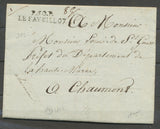 P.50.P.
LE FAYBILLOT
A Monsieur
Monsieur
Préfet du Département de
la haute Marne
à Chaumont